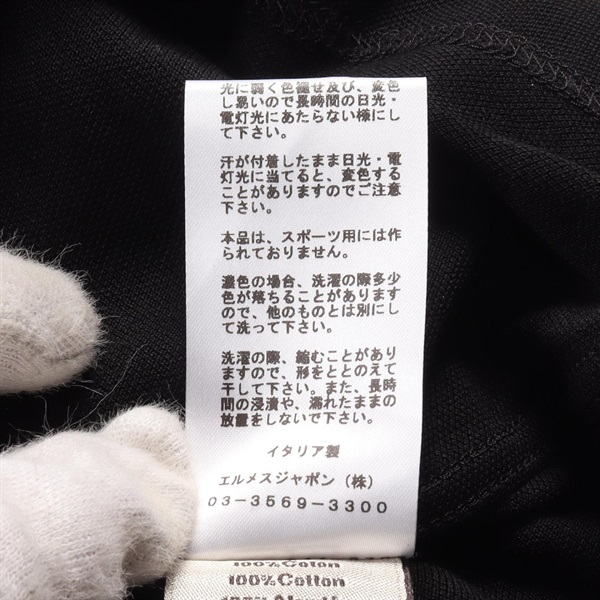 光に弱く色褪せ及び、変色
し易いので長時間の日光・
電灯光にあたらない様にし
て下さい。
汗が付着したまま日光・電
灯光に当てると、変色する
ことがありますのでご注意
下さい。
本品は、スポーツ用には作
られておりません。
濃色の場合、洗濯の際多少
色が落ちることがあります
ので、他のものとは別にし
て洗って下さい。
洗濯の際、縮むことがあり
ますので、形をととのえて
干して下さい。また、長時
間の浸漬や、濡れたままの
放置をしないで下さい。
イタリア製
エルメスジャポン（株）
03-3569-3300
100%Cotton
100%Cotton